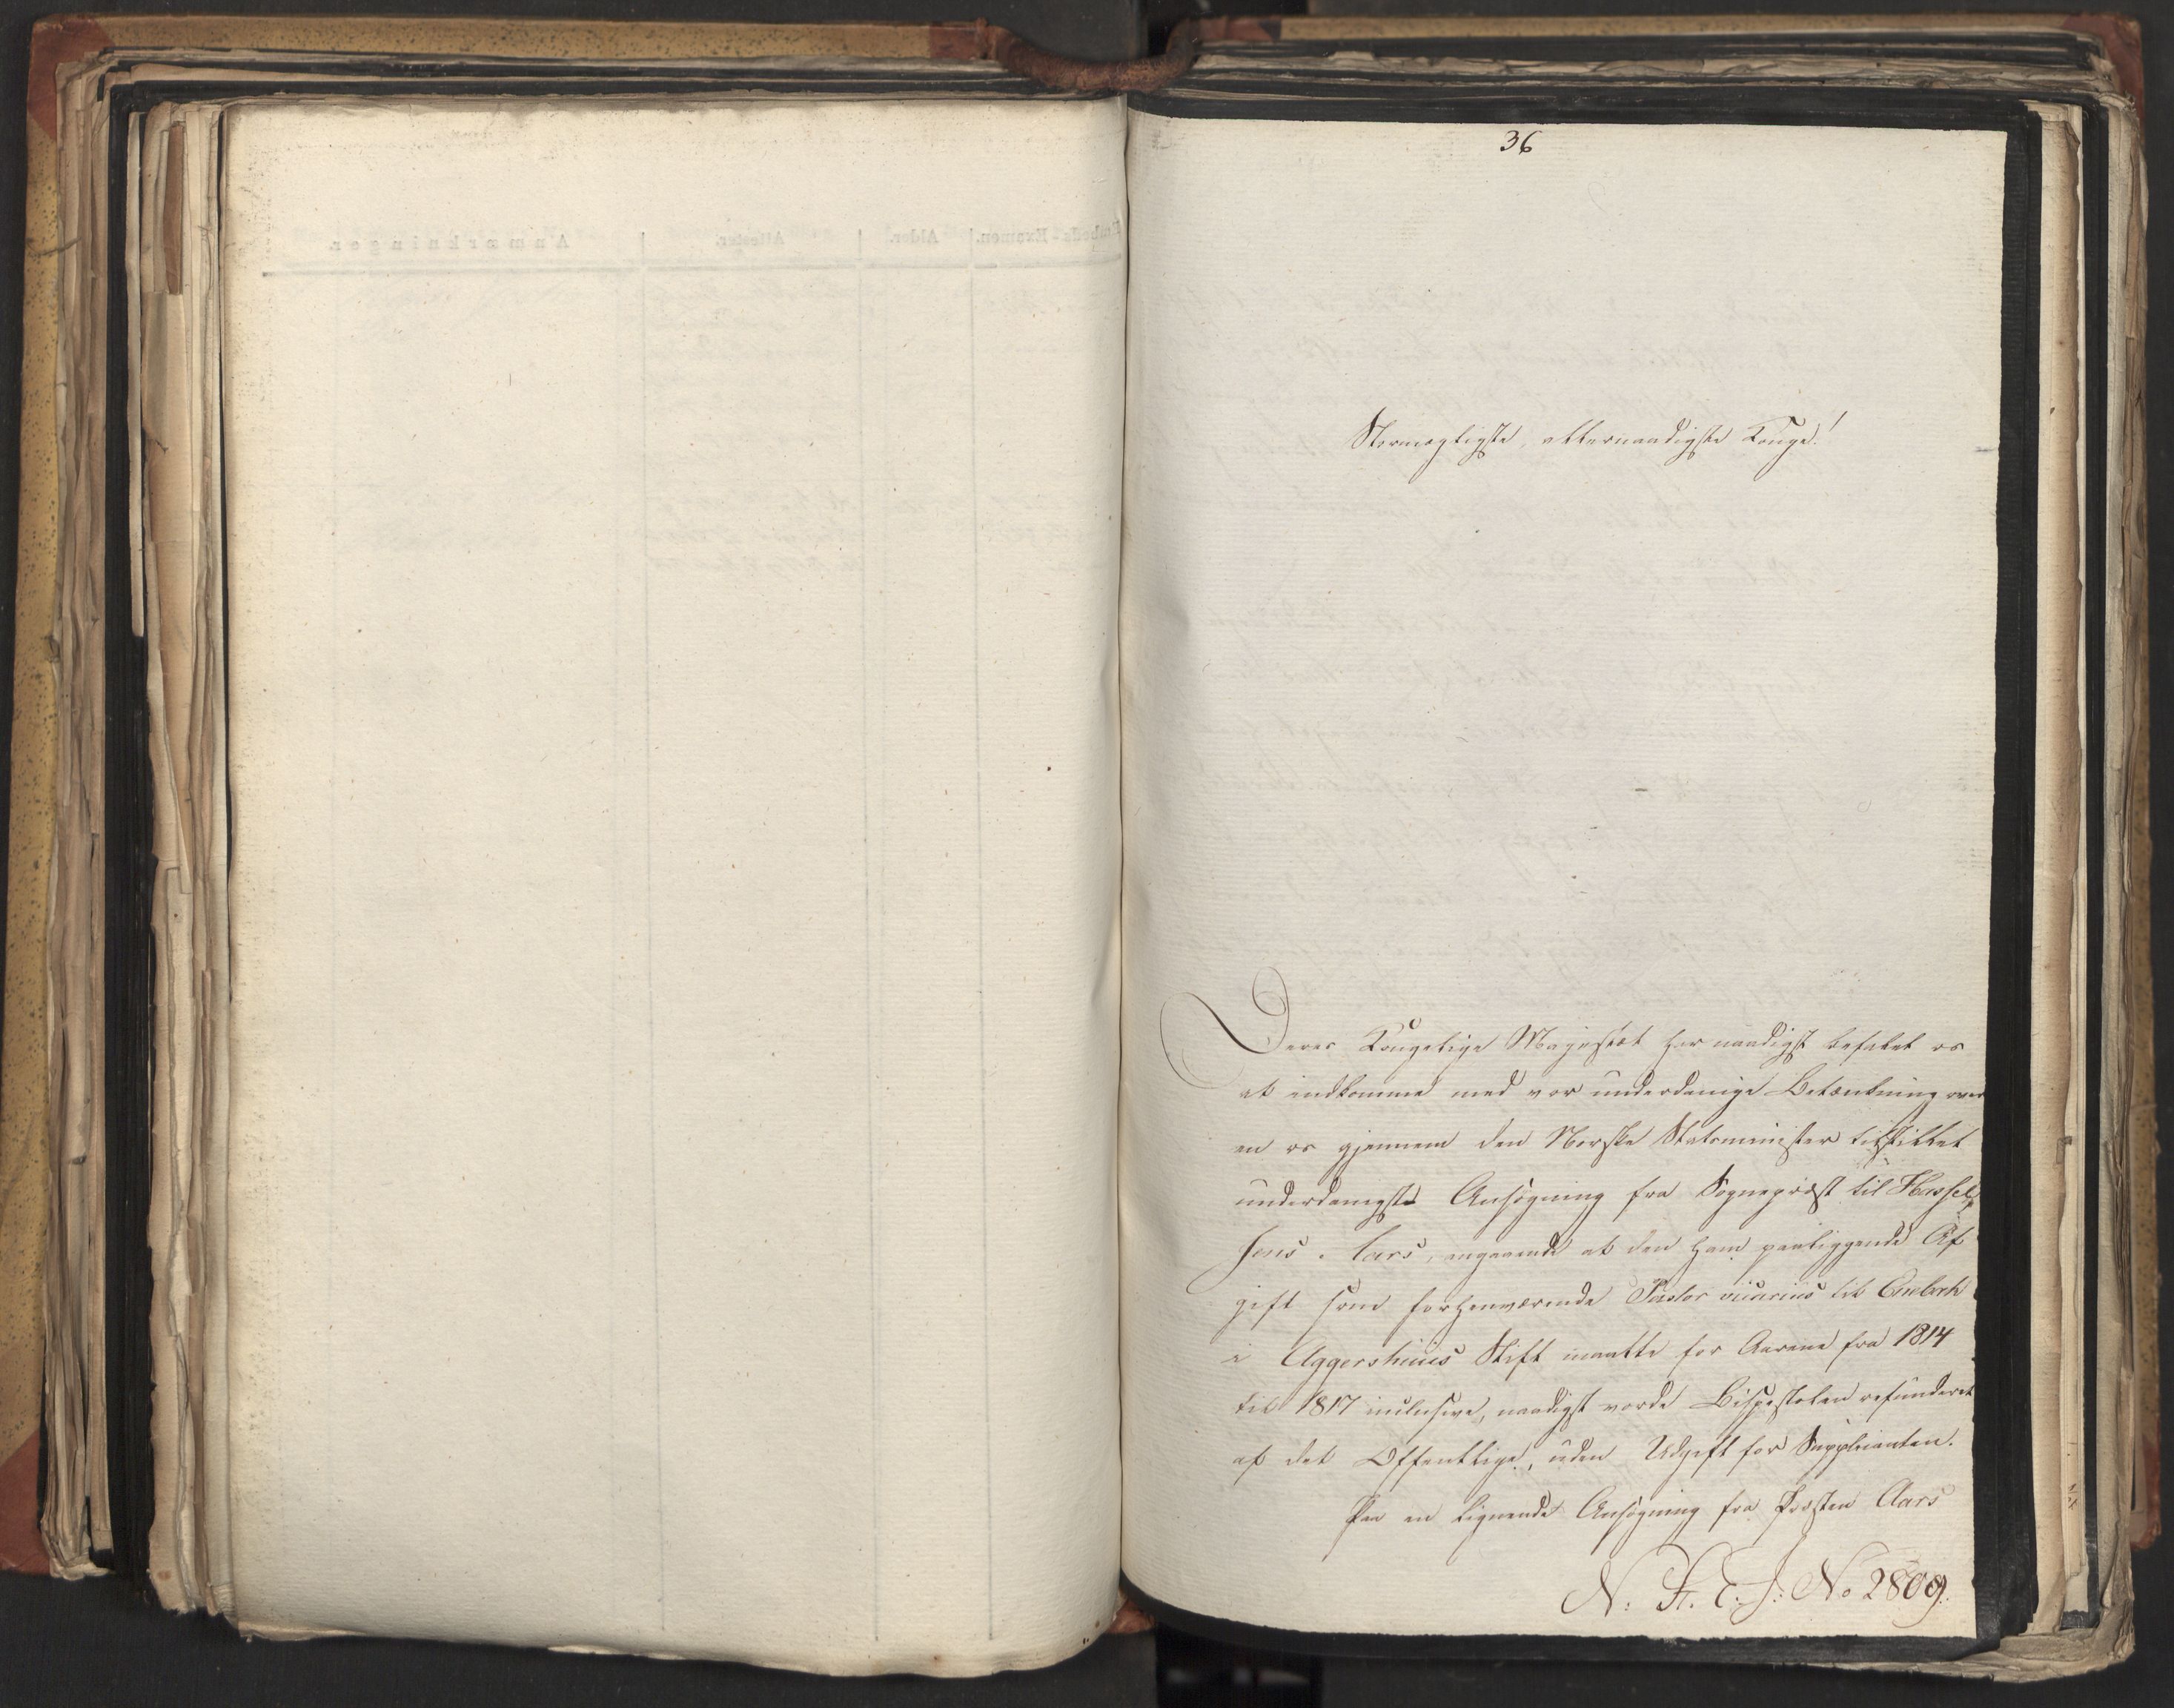 36
Stormægtigste, allernaadigste Konge!
Deres Kongelige Majestæt har naadigst befalet os
at indkomme med vor underdanige Betænkning over
en os gjennem den Norske Statsminister tilstillet
underdanigste Ansøgning fra Sognepræst til Hassel
Jens Aars, angaaende at den ham paaliggende Af
gift som forhenværende Pastor vicarius til
i Aggershuus Stift maatte for Aarene fra 1814
til 1817 inclusive, naadigst vorde Bispestolen refunderet
af det Offentlige, uden Udgift for Supplicanten.
Paa en lignende Ansøgning fra Præsten Aars
N: St. E. J: No 2809.
Anmærkninger.
Attester.
Alder.
Examen.